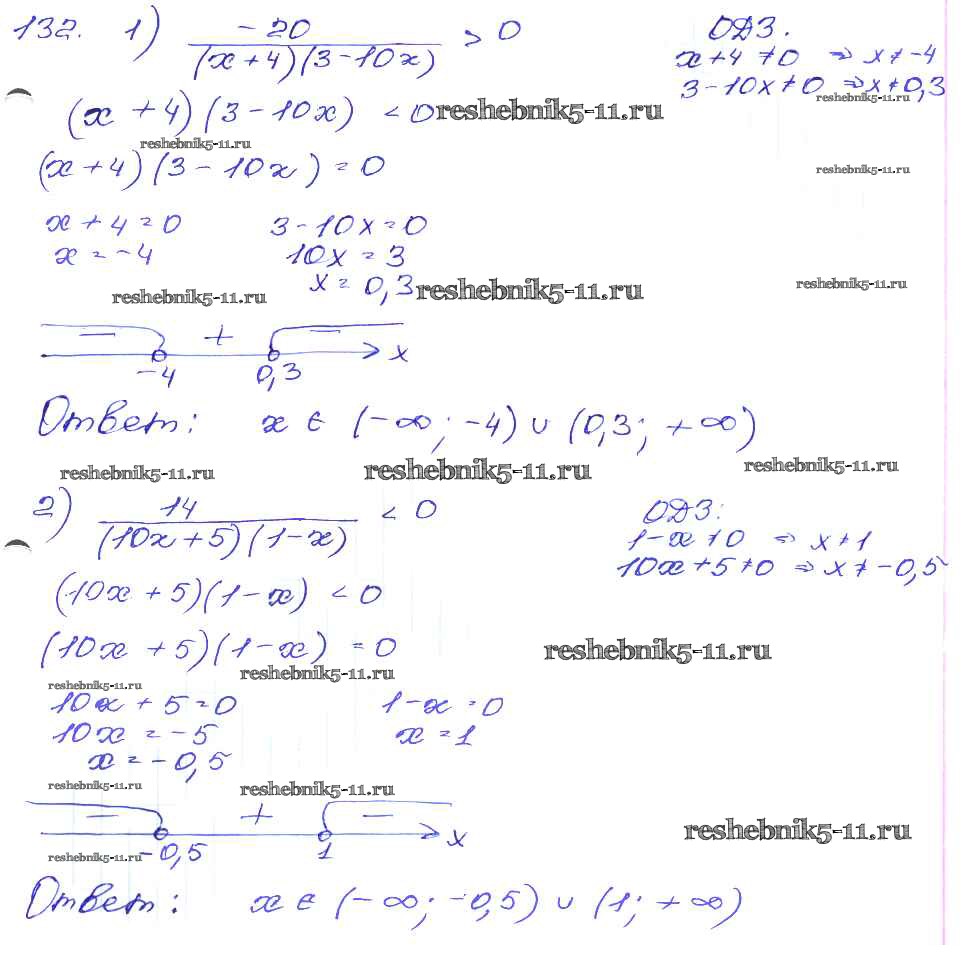 132. 1) -20 / (x+4)(3-10x) > 0 ОДЗ.
x+4≠0 ⇒ x≠-4
3-10x≠0 ⇒ x≠0,3
reshebnik5-11.ru
(x+4)(3-10x) < 0 reshebnik5-11.ru
reshebnik5-11.ru
(x+4)(3-10x) = 0 reshebnik5-11.ru
x+4=0 3-10x=0
x=-4 10x=3
x=0,3 reshebnik5-11.ru reshebnik5-11.ru
reshebnik5-11.ru
- + - x
-4 0,3
Ответ: x ∈ (-∞; -4) ∪ (0,3; +∞)
reshebnik5-11.ru reshebnik5-11.ru reshebnik5-11.ru
2) 14 / (10x+5)(1-x) < 0 ОДЗ:
1-x≠0 ⇒ x≠1
10x+5≠0 ⇒ x≠-0,5
(10x+5)(1-x) < 0
(10x+5)(1-x) = 0 reshebnik5-11.ru
reshebnik5-11.ru reshebnik5-11.ru
10x+5=0 1-x=0
10x=-5 x=1
x=-0,5
reshebnik5-11.ru reshebnik5-11.ru
- + - x reshebnik5-11.ru
reshebnik5-11.ru -0,5 1
Ответ: x ∈ (-∞; -0,5) ∪ (1; +∞)